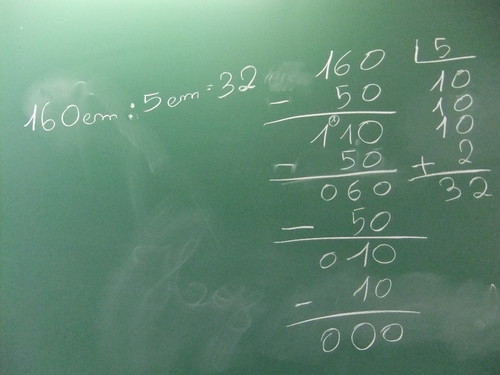 160cm : 5cm = 32
160 5
- 50 10
110 10
- 50 10
060 + 2
- 50 32
010
- 10
000